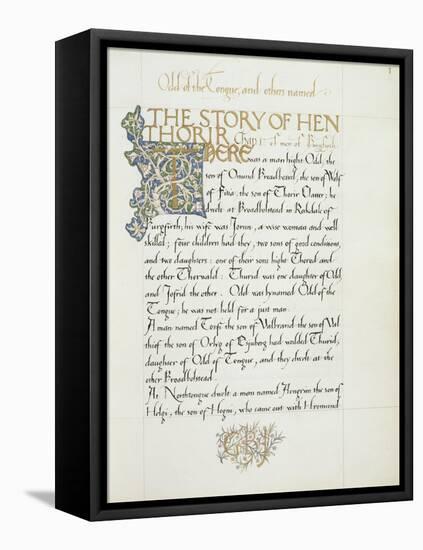 Odd of the Tongue, and others named
1
THE STORY OF HEN
THORIR Chap I of men of Burgfirth
THERE was a man hight Odd, the
son of Onund Broadbeard, the son of Wolf
of Fitia, the son of Thorir Clauer; he
dwelt at Broadbolstead in Rakdale of
Burgfirth; his wife was Jorun, a wise woman and well
skilled; four children had they, two sons of good conditions,
and two daughters: one of their sons hight Thorod and
the other Thorwald: Thurid was one daughter of Odd,
and Jofrid the other. Odd was bynamed Odd of the
Tongue; he was not held for a just man.
A man named Torfi the son of Valbrand the son of Val
thiof the son of Orlyg of Esjuberg had wedded Thurid,
daughter of Odd of Tongue, and they dwelt at the
other Broadbolstead.
At Northtongue dwelt a man named Arngrim the son of
Helgi, the son of Hogni, who came out with Hromund